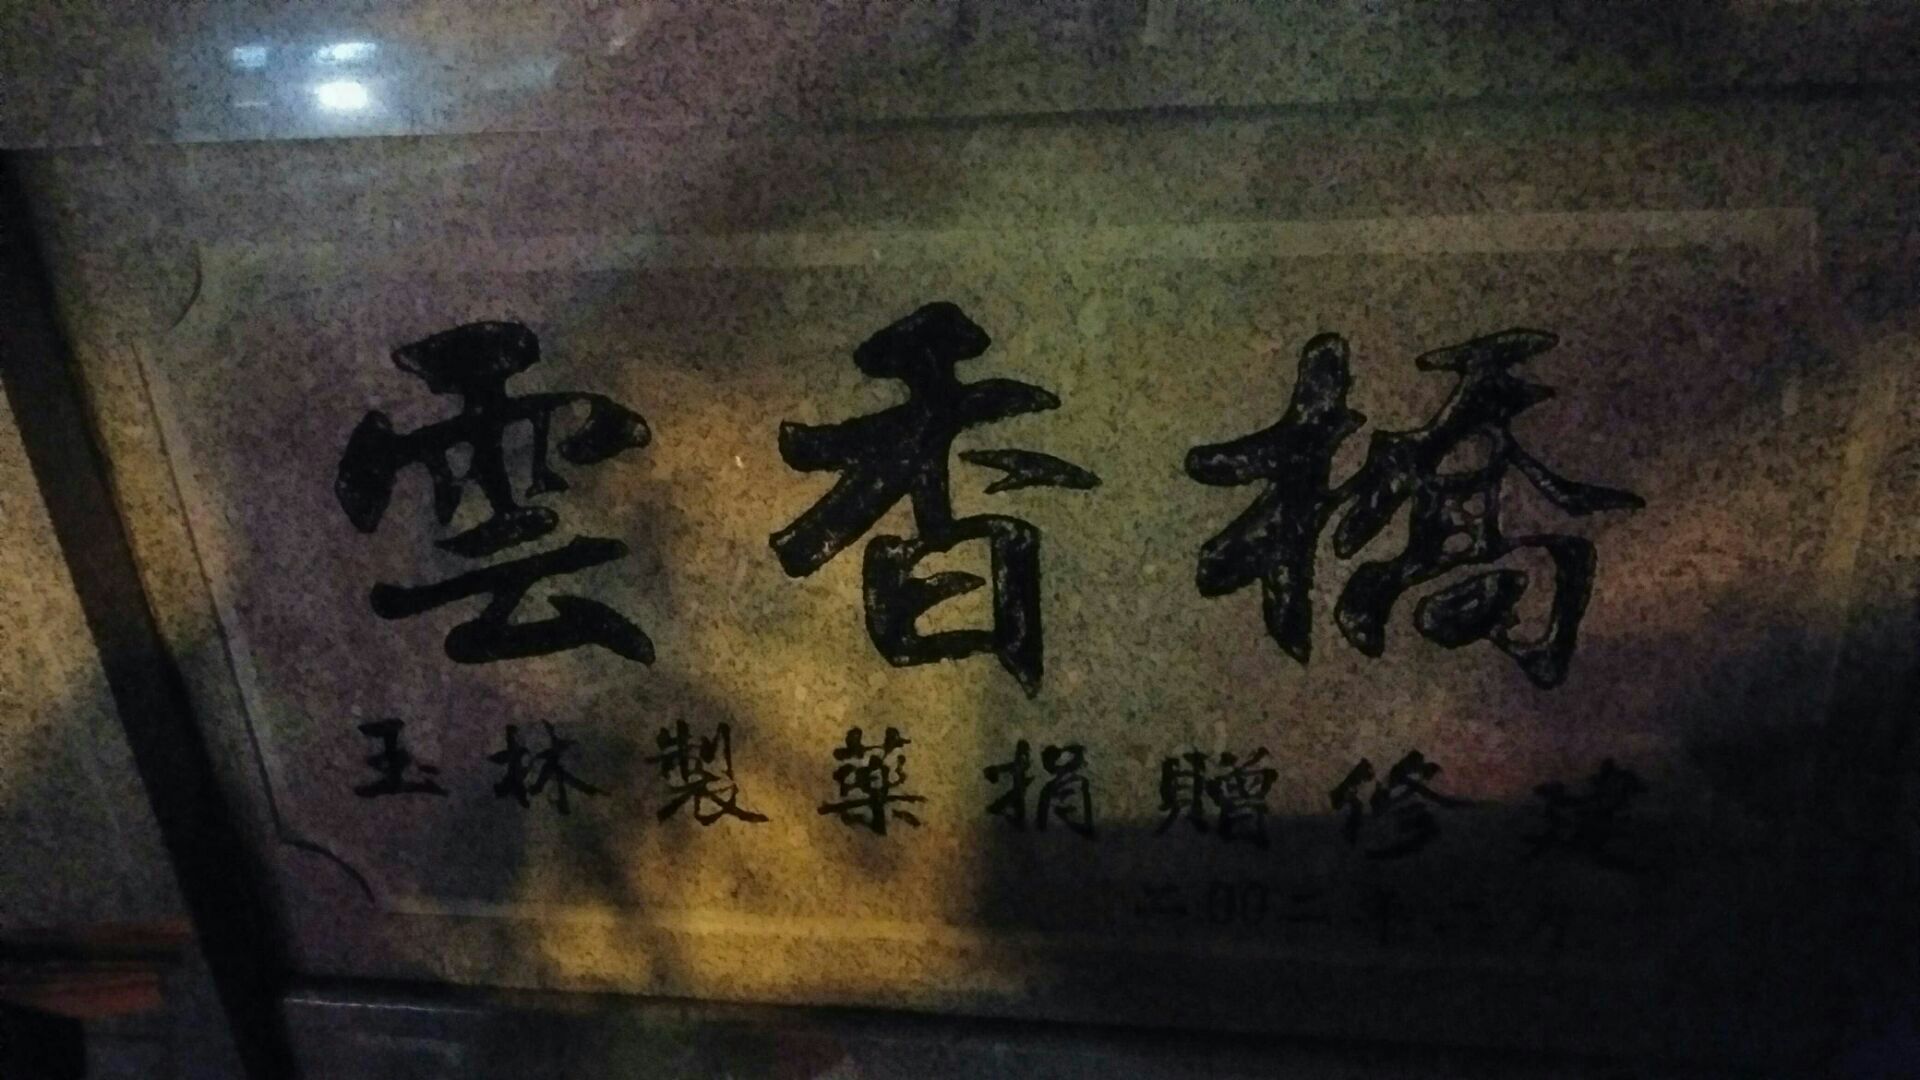 雲香橋
玉林製藥捐贈修建
二00二年二月